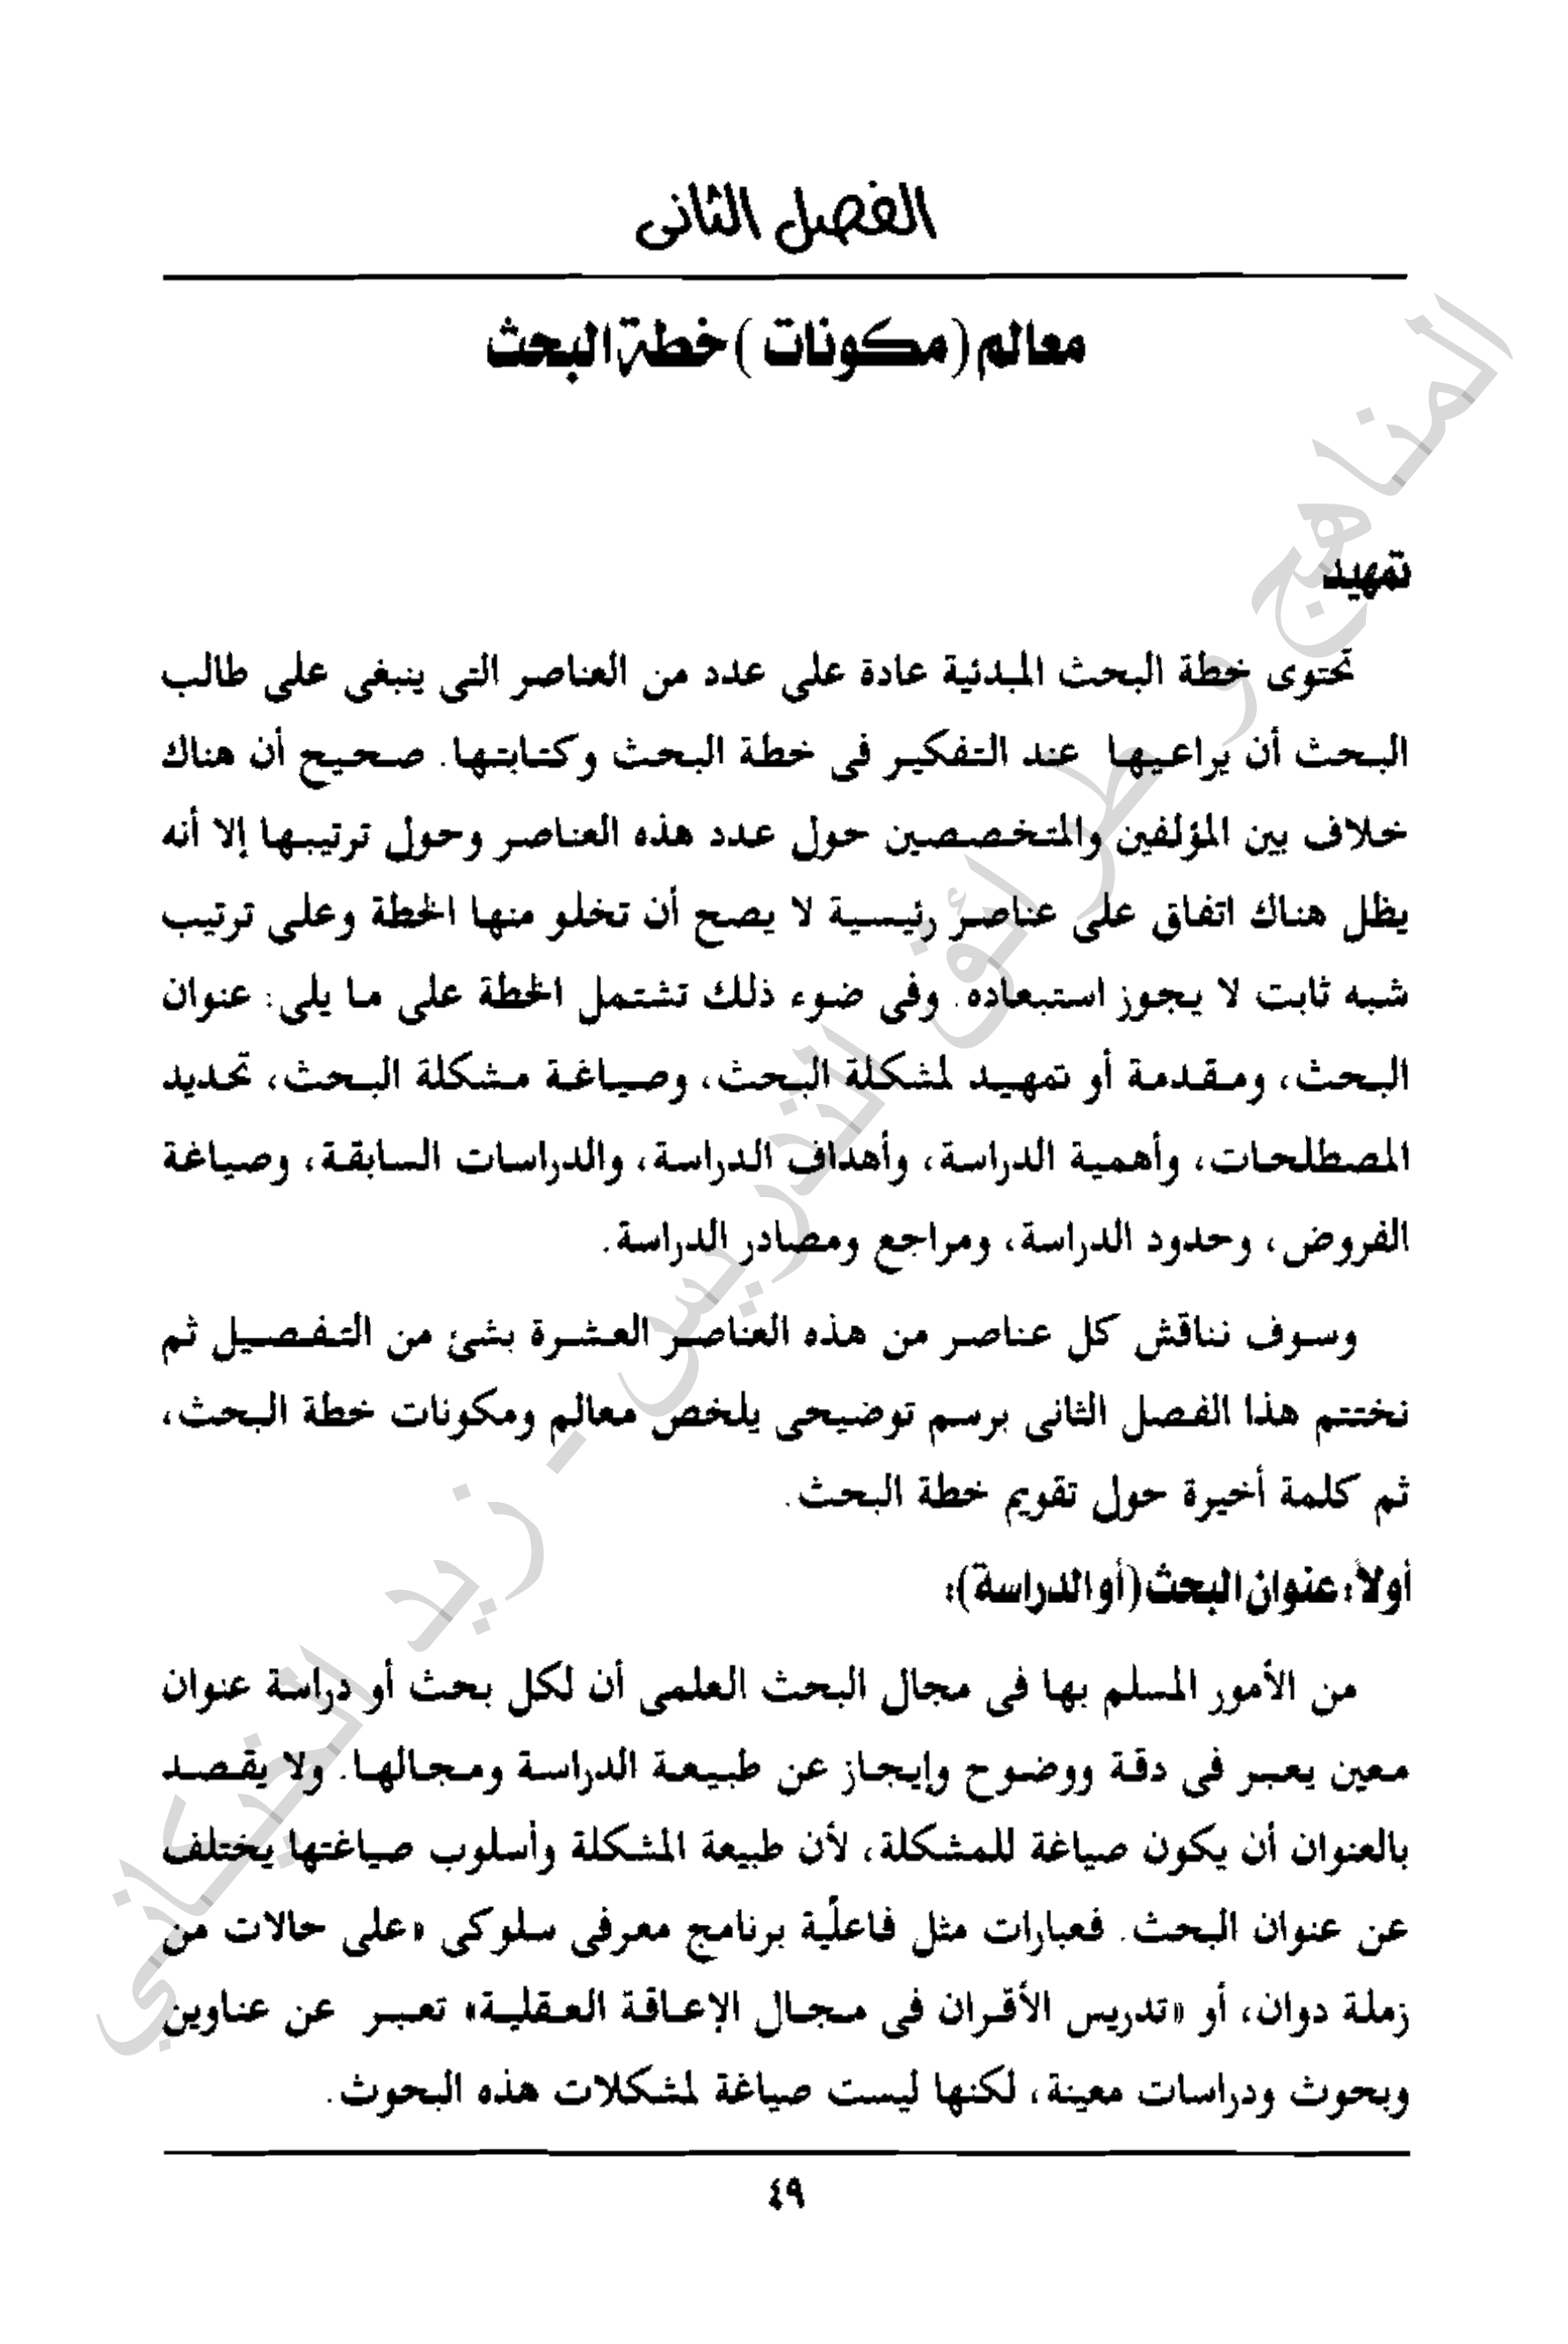 الفصل الثانى
معالم (مكونات) خطة البحث
تمهيد
تحتوى خطة البحث المبدئية عادة على عدد من العناصر التى ينبغى على طالب
البحث أن يراعيها عند التفكير فى خطة البحث وكتابتها. صحيح أن هناك
خلاف بين المؤلفين والمتخصصين حول عدد هذه العناصر وحول ترتيبها إلا أنه
يظل هناك اتفاق على عناصر رئيسية لا يصح أن تخلو منها الخطة وعلى ترتيب
شبه ثابت لا يجوز استبعاده. وفى ضوء ذلك تشتمل الخطة على ما يلى: عنوان
البحث، ومقدمة أو تمهيد لمشكلة البحث، وصياغة مشكلة البحث، تحديد
المصطلحات، وأهمية الدراسة، وأهداف الدراسة، والدراسات السابقة، وصياغة
الفروض، وحدود الدراسة، ومراجع ومصادر الدراسة.
وسوف نناقش كل عناصر من هذه العناصر العشرة بشئ من التفصيل ثم
نختتم هذا الفصل الثانى برسم توضيحى يلخص معالم ومكونات خطة البحث،
ثم كلمة أخيرة حول تقويم خطة البحث.
أولاً: عنوان البحث (أو الدراسة):
من الأمور المسلم بها فى مجال البحث العلمى أن لكل بحث أو دراسة عنوان
معين يعبر فى دقة ووضوح وإيجاز عن طبيعة الدراسة ومجالها. ولا يقصد
بالعنوان أن يكون صياغة للمشكلة، لأن طبيعة المشكلة وأسلوب صياغتها يختلف
عن عنوان البحث. فعبارات مثل فاعلّية برنامج معرفى سلوكى «على حالات من
زملة دوان، أو «تدريس الأقران فى مجال الإعاقة العقلية» تعبر عن عناوين
وبحوث ودراسات معينة، لكنها ليست صياغة لمشكلات هذه البحوث.
٤٩
المناهج وطرائق التدريس - زيد الخيكاني